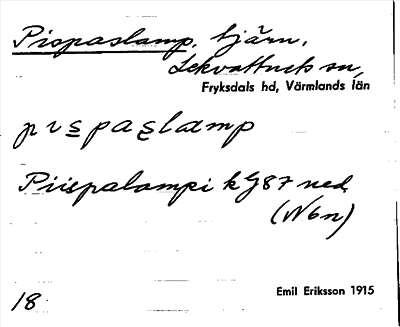 Pispaslamp, tjärn,
Lekvattnets sn,
Fryksdals hd, Värmlands län
pıs̲pas̲lamp
Piispalampi k G87 ned
(N6n)
18
Emil Eriksson 1915